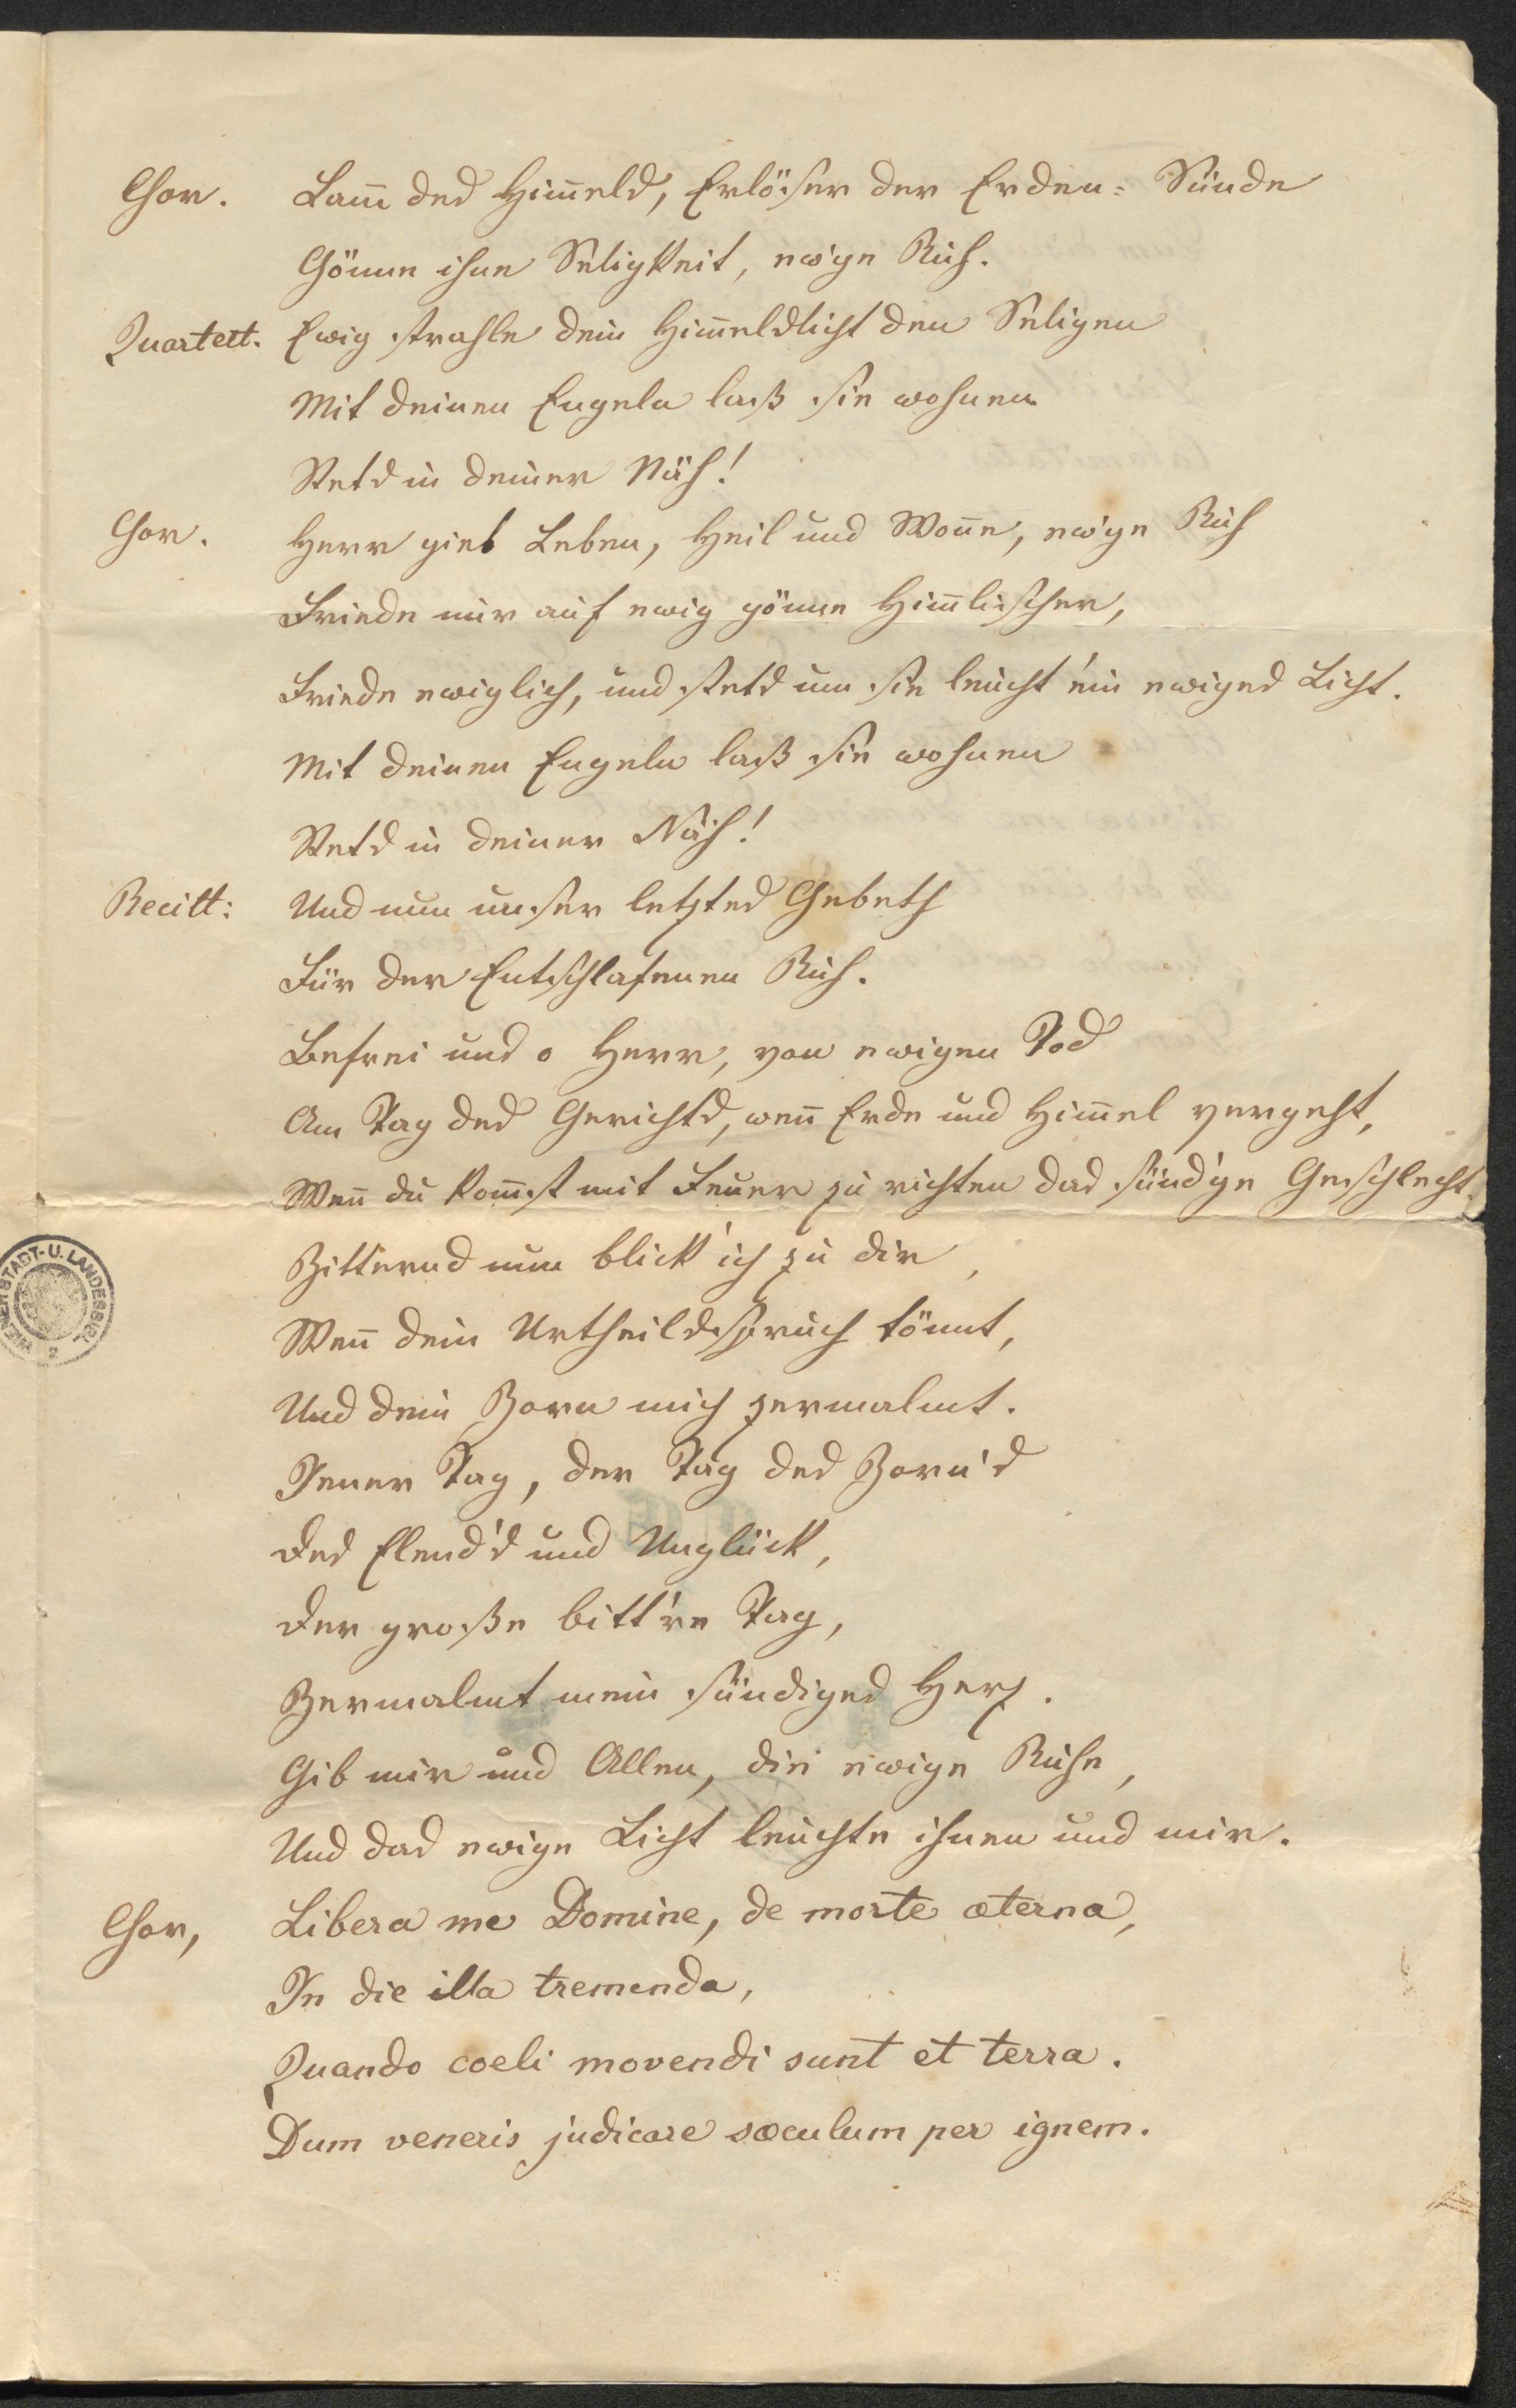 Chor. Lam̄ des Him̄els, Erlöser der Erden-Sünde
Gönne ihne Seligkeit, ew'ge Ruh.
Quartett. Ewig strahle dein Him̄elslicht den Seligen
Mit deinen Engeln laß sie wohnen
Stets in deiner Näh!
Chor. Herr gieb Leben, Heil und Won̄e, ew'ge Ruh
Friede mir auf ewig gönne Him̄lischer,
Friede ewiglich, und stets um sie leucht' ein ewiges Licht.
Mit deinen Engeln laß sie wohnen
Stets in deiner Näh!
Recitt: Und nun unser letztes Gebeth
Für der Entschlafenen Ruh.
Befrei uns o Herr, von ewigen Tod
Am Tag des Gerichts, wen̄ Erde und Him̄el vergeht,
Wen̄ du kom̄st mit Feuer zu richten das sünd'ge Geschlecht.
Zitternd nun blick' ich zu dir,
Wen̄ dein Urtheilsspruch tönnt,
Und dein Zorn mich zermalmt.
Jener Tag, der Tag des Zorn's
Des Elend's und Unglück,
Der große bitt're Tag,
Zermalmt mein sündiges Herz.
Gib mir und Allen, die ewige Ruhe,
Und das ewige Licht leuchte ihnen und mir.
Chor, Libera me Domine, de morte æterna,
In die illa tremenda,
Quando coeli movendi sunt et terra.
Dum veneris judicare sæculum per ignem.
WIENER STADT- U. LANDESBIBL.